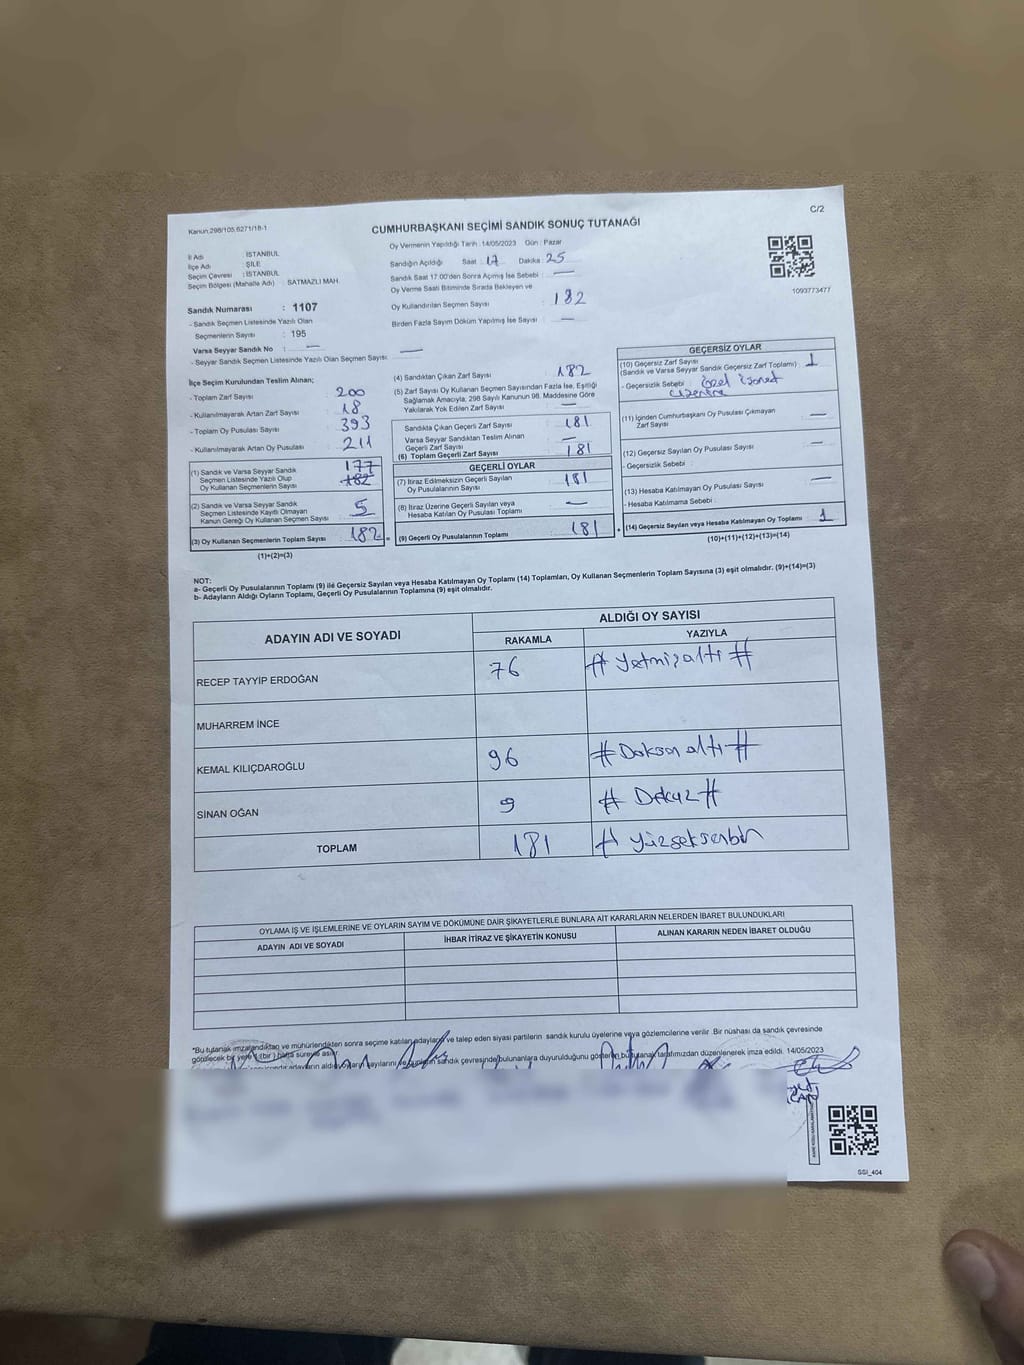 Kanun:298/105,6271/18-1
C/2
CUMHURBAŞKANI SEÇİMİ SANDIK SONUÇ TUTANAĞI
İl Adı : İSTANBUL
İlçe Adı : ŞİLE
Seçim Çevresi : İSTANBUL
Seçim Bölgesi (Mahalle Adı) : SATMAZLI MAH.
Sandık Numarası : 1107
- Sandık Seçmen Listesinde Yazılı Olan
Seçmenlerin Sayısı : 195
Varsa Seyyar Sandık No : —
- Seyyar Sandık Seçmen Listesinde Yazılı Olan Seçmen Sayısı: —
Oy Vermenin Yapıldığı Tarih : 14/05/2023 Gün : Pazar
Sandığın Açıldığı Saat : 17 Dakika : 25
Sandık Saat 17:00'den Sonra Açılmış İse Sebebi : —
Oy Verme Saati Bitiminde Sırada Bekleyen ve
Oy Kullandırılan Seçmen Sayısı : 182
Birden Fazla Sayım Döküm Yapılmış İse Sayısı : —
1093773477
İlçe Seçim Kurulundan Teslim Alınan;
- Toplam Zarf Sayısı : 200
- Kullanılmayarak Artan Zarf Sayısı : 18
- Toplam Oy Pusulası Sayısı : 393
- Kullanılmayarak Artan Oy Pusulası : 211
(1) Sandık ve Varsa Seyyar Sandık
Seçmen Listesinde Yazılı Olup
Oy Kullanan Seçmenlerin Sayısı : 177
182
(2) Sandık ve Varsa Seyyar Sandık
Seçmen Listesinde Kayıtlı Olmayan
Kanun Gereği Oy Kullanan Seçmen Sayısı : 5
(3) Oy Kullanan Seçmenlerin Toplam Sayısı : 182 =
(1)+(2)=(3)
(4) Sandıktan Çıkan Zarf Sayısı : 182
(5) Zarf Sayısı Oy Kullanan Seçmen Sayısından Fazla İse, Eşitliği
Sağlamak Amacıyla, 298 Sayılı Kanunun 98. Maddesine Göre
Yakılarak Yok Edilen Zarf Sayısı : —
Sandıkta Çıkan Geçerli Zarf Sayısı : 181
Varsa Seyyar Sandıktan Teslim Alınan
Geçerli Zarf Sayısı : —
(6) Toplam Geçerli Zarf Sayısı : 181
GEÇERLİ OYLAR
(7) İtiraz Edilmeksizin Geçerli Sayılan
Oy Pusulalarının Sayısı : 181
(8) İtiraz Üzerine Geçerli Sayılan veya
Hesaba Katılan Oy Pusulası Toplamı : —
(9) Geçerli Oy Pusulalarının Toplamı : 181 +
GEÇERSİZ OYLAR
(10) Geçersiz Zarf Sayısı
(Sandık ve Varsa Seyyar Sandık Geçersiz Zarf Toplamı) : 1
- Geçersizlik Sebebi : özel işaret
(11) İçinden Cumhurbaşkanı Oy Pusulası Çıkmayan
Zarf Sayısı : —
(12) Geçersiz Sayılan Oy Pusulası Sayısı : —
- Geçersizlik Sebebi :
(13) Hesaba Katılmayan Oy Pusulası Sayısı : —
- Hesaba Katılmama Sebebi :
(14) Geçersiz Sayılan veya Hesaba Katılmayan Oy Toplamı : 1
(10)+(11)+(12)+(13)=(14)
NOT:
a- Geçerli Oy Pusulalarının Toplamı (9) ile Geçersiz Sayılan veya Hesaba Katılmayan Oy Toplamı (14) Toplamları, Oy Kullanan Seçmenlerin Toplam Sayısına (3) eşit olmalıdır. (9)+(14)=(3)
b- Adayların Aldığı Oyların Toplamı, Geçerli Oy Pusulalarının Toplamına (9) eşit olmalıdır.
ADAYIN ADI VE SOYADI
ALDIĞI OY SAYISI
RAKAMLA YAZIYLA
RECEP TAYYİP ERDOĞAN 76 # Yetmişaltı #
MUHARREM İNCE
KEMAL KILIÇDAROĞLU 96 # Doksan altı #
SİNAN OĞAN 9 # Dokuz #
TOPLAM 181 # Yüzseksenbir
OYLAMA İŞ VE İŞLEMLERİNE VE OYLARIN SAYIM VE DÖKÜMÜNE DAİR ŞİKAYETLERLE BUNLARA AİT KARARLARIN NELERDEN İBARET BULUNDUKLARI
ADAYIN ADI VE SOYADI İHBAR İTİRAZ VE ŞİKAYETİN KONUSU ALINAN KARARIN NEDEN İBARET OLDUĞU
*Bu tutanak imzalandıktan ve mühürlendikten sonra seçime katılan adaylara ve talep eden siyasi partilerin sandık kurulu üyelerine veya gözlemcilerine verilir .Bir nüshası da sandık çevresinde
görülecek bir yere 1 (bir ) hafta süreyle asılır.
adayların aldığı oyların sayılarını ve bunların sandık çevresinde bulunanlara duyurulduğunu gösteren bu tutanak tarafımızdan düzenlenerek imza edildi. 14/05/2023
SSI_404